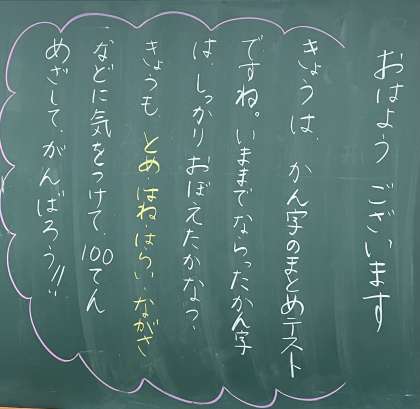 おはよう ございます
きょうは、かん字のまとめテスト
ですね。いままでならったかん字
は、しっかりおぼえたかな?
きょうも、とめ・はね・はらい・ながさ
などに気をつけて、100てん
めざして、がんばろう!!